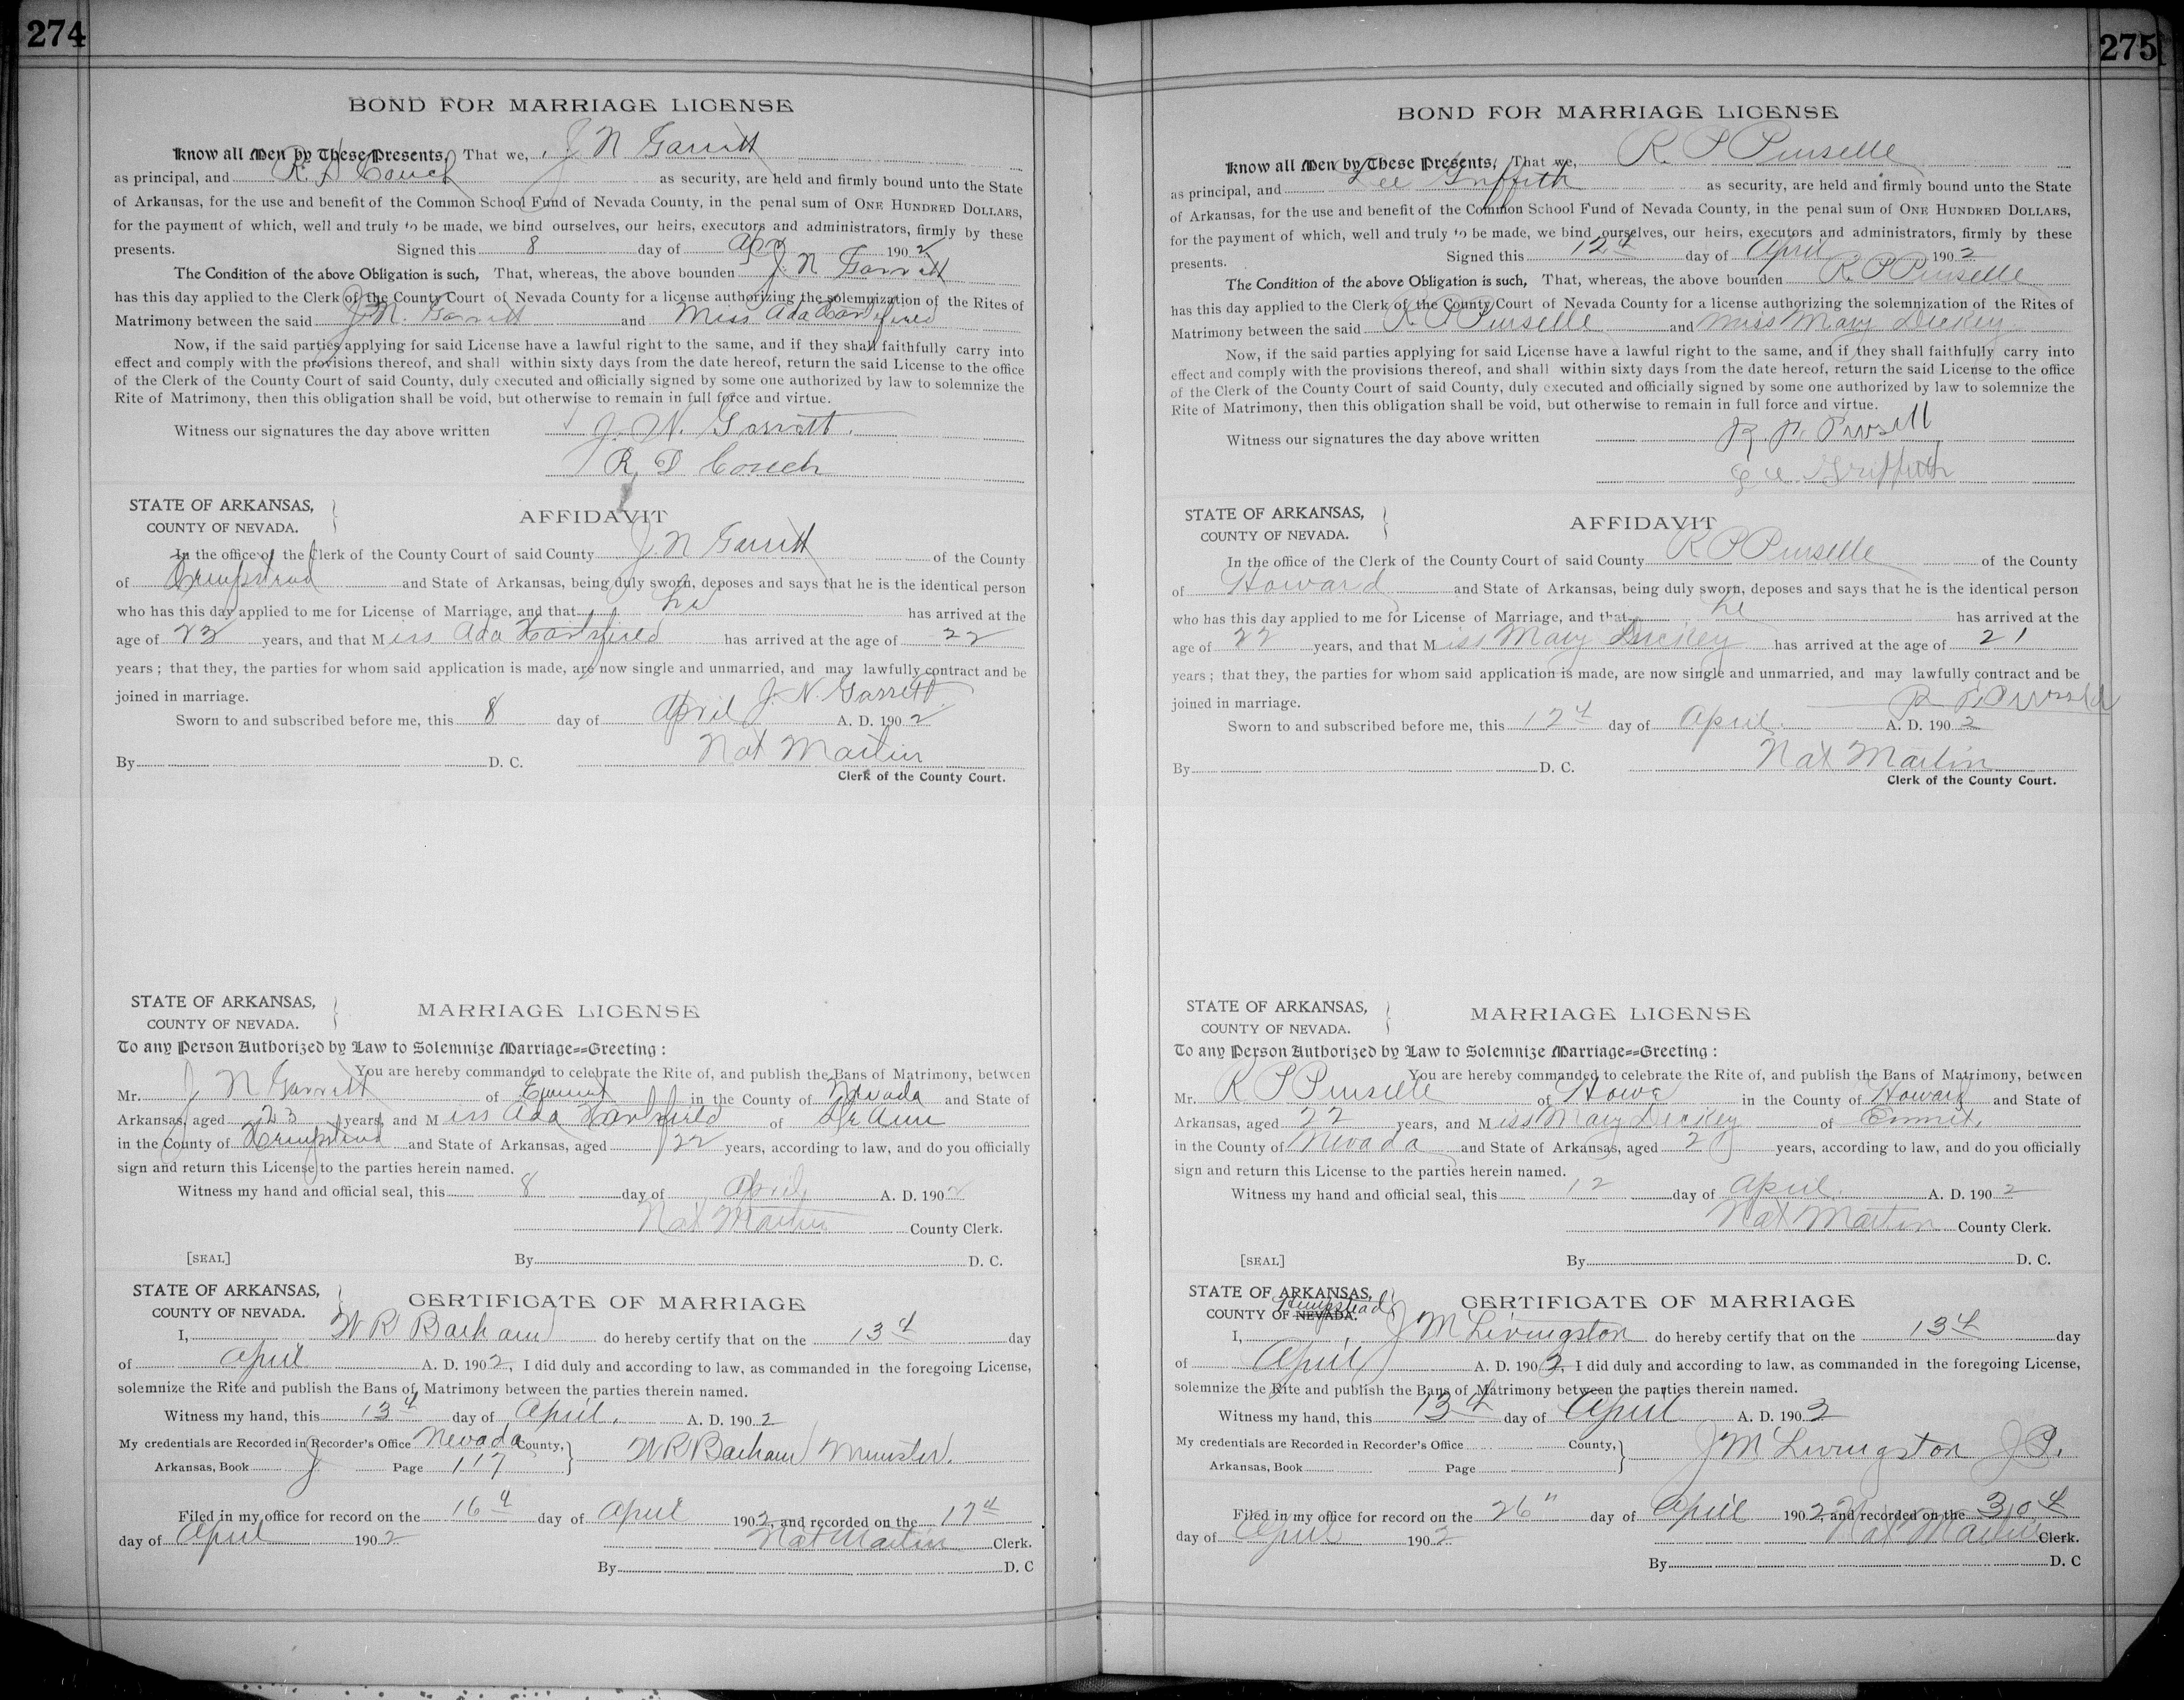 274
BOND FOR MARRIAGE LICENSE
Know all Men by These Presents, That we, J N Garrett
as principal, and R. D Couch as security, are held and firmly bound unto the State
of Arkansas, for the use and benefit of the Common School Fund of Nevada County, in the penal sum of ONE HUNDRED DOLLARS,
for the payment of which, well and truly to be made, we bind ourselves, our heirs, executors and administrators, firmly by these
presents. Signed this 8 day of Apr 1902
The Condition of the above Obligation is such, That, whereas, the above bounden J. N Garrett
has this day applied to the Clerk of the County Court of Nevada County for a license authorizing the solemnization of the Rites of
Matrimony between the said J. N. Garrett and Miss Ada Hartsfield
Now, if the said parties applying for said License have a lawful right to the same, and if they shall faithfully carry into
effect and comply with the provisions thereof, and shall within sixty days from the date hereof, return the said License to the office
of the Clerk of the County Court of said County, duly executed and officially signed by some one authorized by law to solemnize the
Rite of Matrimony, then this obligation shall be void, but otherwise to remain in full force and virtue.
Witness our signatures the day above written J. N. Garrett.
R. D Couch
STATE OF ARKANSAS,
COUNTY OF NEVADA.
AFFIDAVIT
In the office of the Clerk of the County Court of said County J. N Garrett of the County
of Hempstead and State of Arkansas, being duly sworn, deposes and says that he is the identical person
who has this day applied to me for License of Marriage, and that he has arrived at the
age of 23 years, and that Miss Ada Hartsfield has arrived at the age of 22
years; that they, the parties for whom said application is made, are now single and unmarried, and may lawfully contract and be
joined in marriage. J. N. Garrett.
Sworn to and subscribed before me, this 8 day of April A. D. 1902
Nat Martin
By D. C.
Clerk of the County Court.
STATE OF ARKANSAS,
COUNTY OF NEVADA.
MARRIAGE LICENSE
To any Person Authorized by Law to Solemnize Marriage==Greeting:
You are hereby commanded to celebrate the Rite of, and publish the Bans of Matrimony, between
Mr. J N Garrett of Emmet in the County of Nevada and State of
Arkansas, aged 23 years, and Miss Ada Hartsfield of De Ann
in the County of Hempstead and State of Arkansas, aged 22 years, according to law, and do you officially
sign and return this License to the parties herein named.
Witness my hand and official seal, this 8 day of April A. D. 1902
Nat Martin County Clerk.
[SEAL] By D. C.
STATE OF ARKANSAS,
COUNTY OF NEVADA.
CERTIFICATE OF MARRIAGE
I, W R Barham do hereby certify that on the 13th day
of April A. D. 1902, I did duly and according to law, as commanded in the foregoing License,
solemnize the Rite and publish the Bans of Matrimony between the parties therein named.
Witness my hand, this 13th day of April. A. D. 1902
My credentials are Recorded in Recorder's Office Nevada County,
Arkansas, Book J. Page 117
W R Barham Minister.
Filed in my office for record on the 16th day of April 1902, and recorded on the 17th
day of April 1902 Nat Martin Clerk.
By D. C
275
BOND FOR MARRIAGE LICENSE
Know all Men by These Presents, That we, R. P Purselle
as principal, and Lee Griffith as security, are held and firmly bound unto the State
of Arkansas, for the use and benefit of the Common School Fund of Nevada County, in the penal sum of ONE HUNDRED DOLLARS,
for the payment of which, well and truly to be made, we bind ourselves, our heirs, executors and administrators, firmly by these
presents. Signed this 12th day of April 1902
The Condition of the above Obligation is such, That, whereas, the above bounden R. P Purselle
has this day applied to the Clerk of the County Court of Nevada County for a license authorizing the solemnization of the Rites of
Matrimony between the said R P Purselle and Miss Mary Dickey
Now, if the said parties applying for said License have a lawful right to the same, and if they shall faithfully carry into
effect and comply with the provisions thereof, and shall within sixty days from the date hereof, return the said License to the office
of the Clerk of the County Court of said County, duly executed and officially signed by some one authorized by law to solemnize the
Rite of Matrimony, then this obligation shall be void, but otherwise to remain in full force and virtue.
Witness our signatures the day above written R. P. Pursell
Lee Griffith
STATE OF ARKANSAS,
COUNTY OF NEVADA.
AFFIDAVIT
In the office of the Clerk of the County Court of said County R P Purselle of the County
of Howard and State of Arkansas, being duly sworn, deposes and says that he is the identical person
who has this day applied to me for License of Marriage, and that he has arrived at the
age of 22 years, and that Miss Mary Dickey has arrived at the age of 21
years; that they, the parties for whom said application is made, are now single and unmarried, and may lawfully contract and be
joined in marriage. R P. Pursell
Sworn to and subscribed before me, this 12th day of April. A. D. 1902
Nat Martin
By D. C.
Clerk of the County Court.
STATE OF ARKANSAS,
COUNTY OF NEVADA.
MARRIAGE LICENSE
To any Person Authorized by Law to Solemnize Marriage==Greeting:
You are hereby commanded to celebrate the Rite of, and publish the Bans of Matrimony, between
Mr. R P Purselle of Howe in the County of Howard and State of
Arkansas, aged 22 years, and Miss Mary Dickey of Emmet.
in the County of Nevada and State of Arkansas, aged 2 years, according to law, and do you officially
sign and return this License to the parties herein named.
Witness my hand and official seal, this 12 day of April. A. D. 1902
Nat Martin County Clerk.
[SEAL] By D. C.
STATE OF ARKANSAS,
Hempstead
COUNTY OF NEVADA.
CERTIFICATE OF MARRIAGE
I, J M Livingston do hereby certify that on the 13th day
of April A. D. 1902, I did duly and according to law, as commanded in the foregoing License,
solemnize the Rite and publish the Bans of Matrimony between the parties therein named.
Witness my hand, this 13th day of April A. D. 1902
My credentials are Recorded in Recorder's Office County,
Arkansas, Book Page
J M Livingston J P.
Filed in my office for record on the 26" day of April 1902, and recorded on the 30th
day of April 1902 Nat Martin Clerk.
By D. C